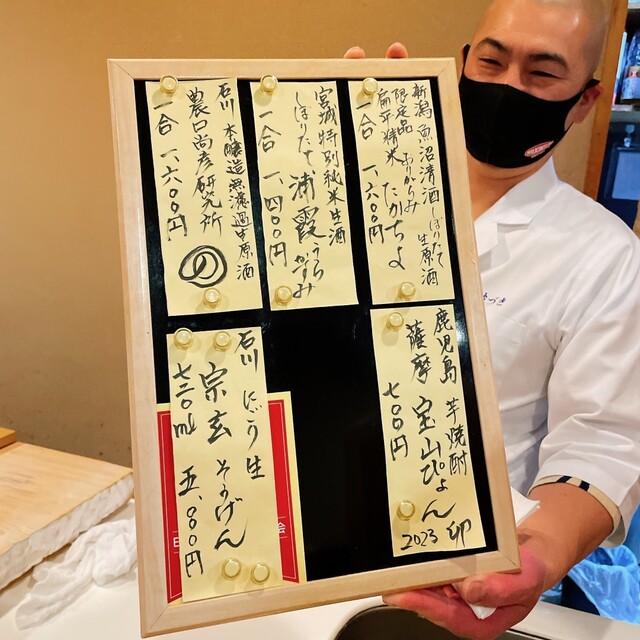 新潟 魚沼清酒 しぼりたて生原酒
限定品 おりがらみ
扁平精米 たかちよ
一合 一、六〇〇円
宮城 特別純米生酒
しぼりたて 浦霞 うらがすみ
一合 一、四〇〇円
石川 本醸造無濾過生原酒
農口尚彦研究所
一合 一、六〇〇円
の
鹿児島 芋焼酎
薩摩 宝山ぴょん 卯
七〇〇円 2023
石川 にごり生
宗玄 そうげん
七二〇ml 五、〇〇〇円